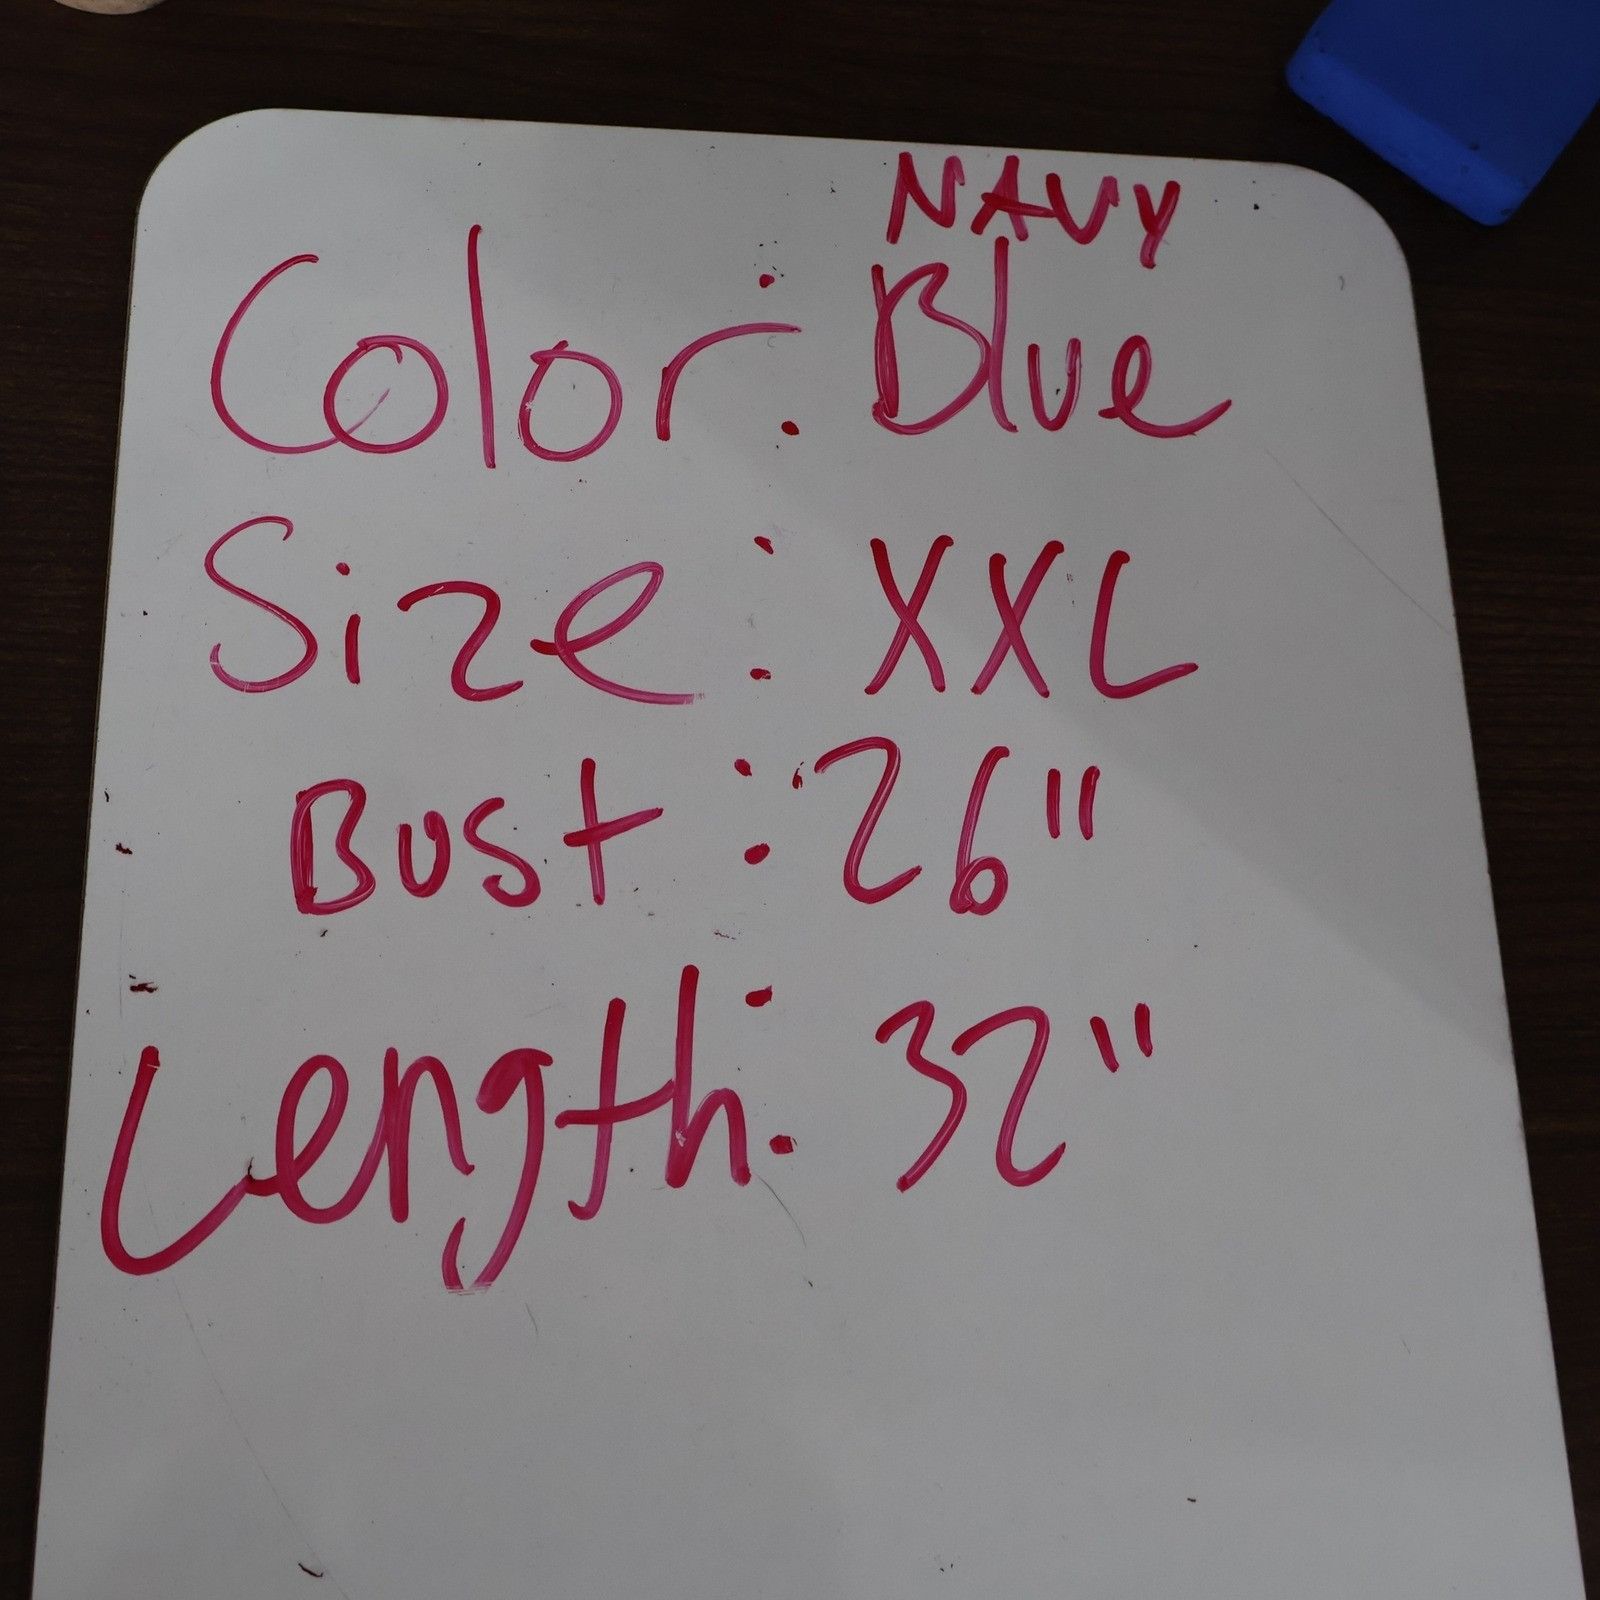 Color: NAVY Blue
Size: XXL
Bust: 26"
Length: 32"